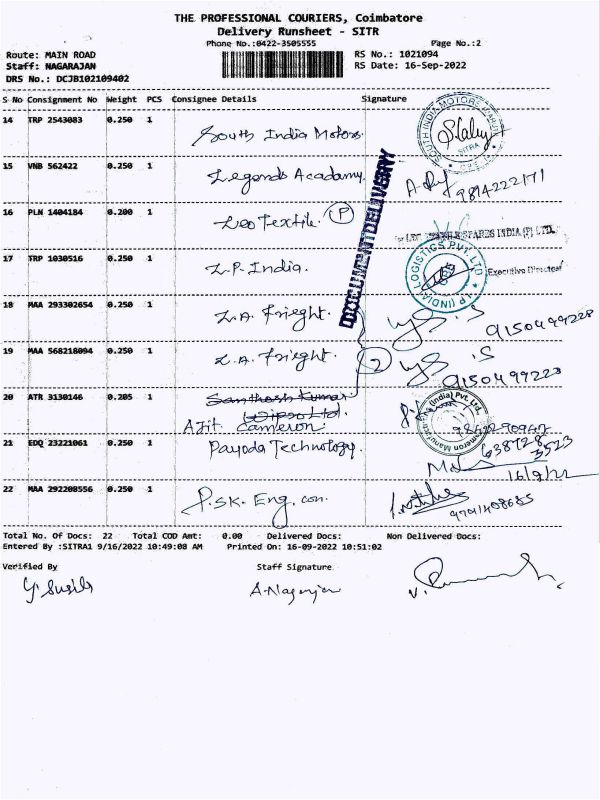 THE PROFESSIONAL COURIERS, Coimbatore
Delivery Runsheet - SITR
Phone No.:0422-3505555 Page No.:2
Route: MAIN ROAD RS No.: 1021094
Staff: NAGARAJAN RS Date: 16-Sep-2022
DRS No.: DCJB102109402
S No Consignment No Weight PCS Consignee Details Signature
14 TRP 2543083 0.250 1 South India Motors.
SOUTH INDIA MOTORS
SITRA
15 VNB 562422 0.250 1 Legends Acadamy. 9814222171
16 PLN 1404184 0.200 1 Leo Textile. P
SPARES INDIA (P) LTD.
DOCUMENT DELIVERY
17 TRP 1030516 0.250 1 L.P. India.
L P (INDIA) LOGISTICS PVT. LTD
Executive Director
18 MAA 293302654 0.250 1 L.A. Frieght.
9150499228
19 MAA 568218094 0.250 1 L.A. Frieght. 2
9150499228
20 ATR 3130146 0.205 1 Santhosh Kumar
(Wipro Ltd.
Ajit Cameron
Cameron (India) Pvt. Ltd.
21 EDQ 23221061 0.250 1 Payoda Technology.
638728
3523
16/9/22
22 MAA 292208556 0.250 1 P.SK. Eng. con.
9791408685
Total No. Of Docs: 22 Total COD Amt: 0.00 Delivered Docs: Non Delivered Docs:
Entered By :SITRA1 9/16/2022 10:49:08 AM Printed On: 16-09-2022 10:51:02
Verified By Staff Signature
Y. Susila A. Nagarajan